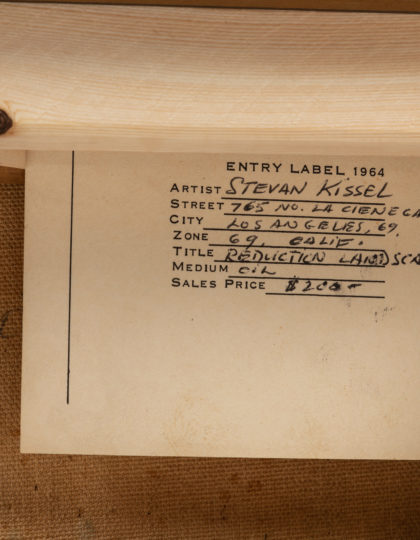 ENTRY LABEL 1964
ARTIST STEVAN KISSEL
STREET 765 NO. LA CIENEGA
CITY LOS ANGELES, 69,
ZONE 69, CALIF.
TITLE REDUCTION LANDSCA
MEDIUM OIL
SALES PRICE $200-